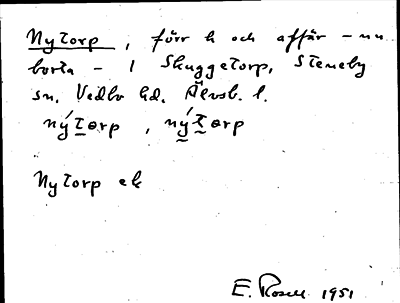 Nytorp, förr h och affär – nu
borta – i Skuggetorp, Steneby
sn, Vedbo hd, Älvsb. l.
nýtorp, nýtorp
Nytorp eh
E. Rosell 1951